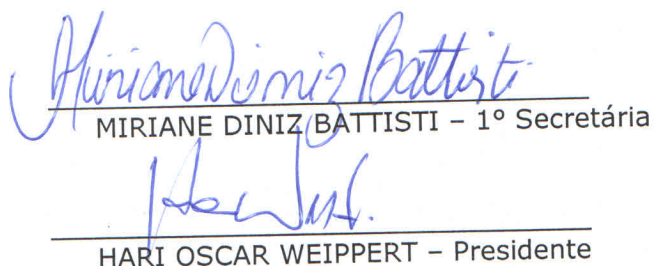 Miriane Diniz Battisti
MIRIANE DINIZ BATTISTI – 1º Secretária
HARI OSCAR WEIPPERT – Presidente